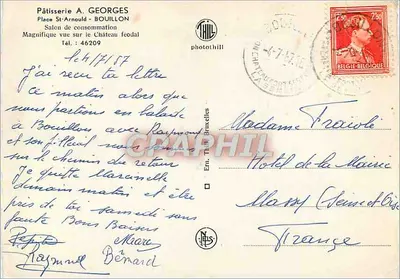 Pâtisserie A. GEORGES
Place St-Arnould - BOUILLON
Salon de consommation
Magnifique vue sur le Château féodal
Tél. : 46209
Le 4/7/57
J'ai reçu ta lettre
ce matin alors que
nous partions en balade
à Bouillon avec Raymond
et son filleul nous
sur le chemin du retour
Je quitte Maranelle
demain matin et être
près de toi samedi sans
faute Bons Baisers
Pépé
Marie
Raymond
Bernard
THILL
photothill
Ern. Thill, Bruxelles
NELS
CPAPHIL
1,50
BELGIE-BELGIQUE
Madame Fraioli
Hotel de la Mairie
Massy (Seine et Oise)
France